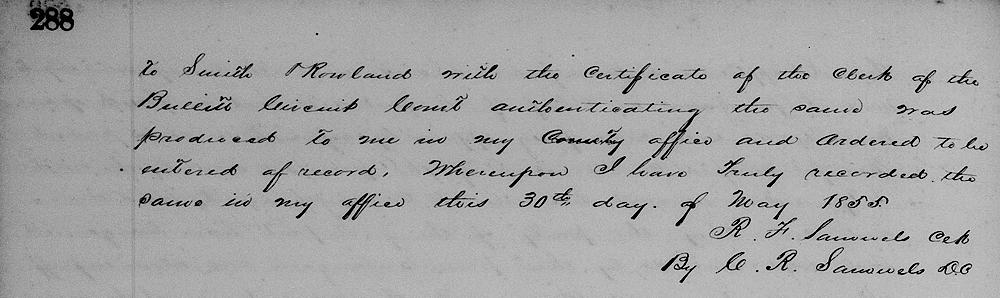 288
to Smith & Rowland with the Certificate of the Clerk of the
Bullitt Circuit Court authenticating the same was
produced to me in my County office and Ordered to be
entered of record. Whereupon I have Truly recorded the
same in my office this 30th day. of May 1855.
R. F. Samuels Clk
By C. R. Samuels D.C